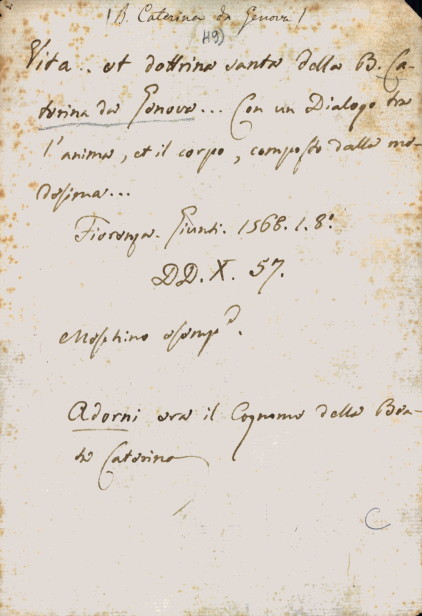 (B. Caterina da Genova)
49)
Vita.. et dottrina santa della B. Ca-
terina da Genova... Con un Dialogo tra
l'anima, et il corpo, composto dalla me-
desima...
Fiorenza. Giunti. 1568. 1. 8.°
DD. X. 57.
Meschino esemp.
Adorni era il Cognome della Bea-
ta Caterina
C